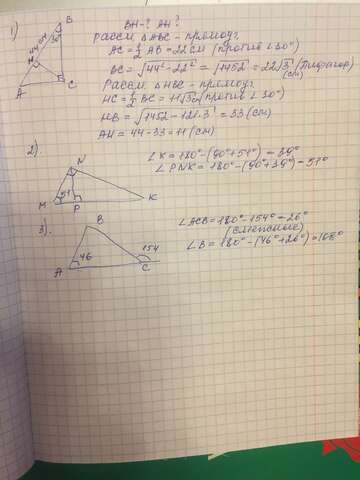 1)
B
44 см
30°
H
A
C
BH-? AH?
Рассм ΔABC - прямоуг.
AC = 1/2 AB = 22 см (против ∠30°)
BC = √44²-22² = √1452 = 22√3 (Пифагор)
(см)
Рассм ΔHBC - прямоуг.
HC = 1/2 BC = 11√3 (против ∠30°)
HB = √1452-121·3 = 33 (см)
AH = 44-33 = 11 (см)
2)
N
51
M
P
K
∠K = 180° - (90°+51°) = 39°
∠PNK = 180° - (90°+39°) = 51°
3).
B
A
46
154
C
∠ACB = 180° - 154° = 26°
(смежные)
∠B = 180° - (46°+26°) = 108°